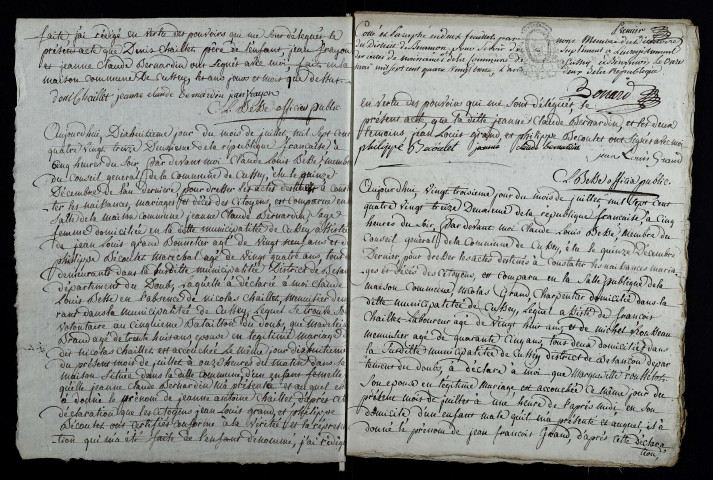 fait j'ai rédigé en vertu des pouvoirs qui me sont délégués le
présent acte que Denis Chaillet père de l'enfant, jean françois
et jeanne Claude Bernardin ont signés avec moi fait en la
maison Commune de Cussey, les ans jour et mois que dessus.
denis Chaillet jeanne claude bernardin jean
C L Besse officier public
Aujourdhui, Dixhuitieme jour du mois de juillet, mil sept cent
quatre vingt treize Deuxieme de la république française à
cinq heures du soir, Par devant moi Claude Louis Besse, membre
du Conseil general de la Commune de Cussey, élu le quinze
Décembre de l'an dernier pour dresser les actes destinés à consta-
ter les naissances, mariages et décès des Citoyens, est comparue en la
salle de la maison commune jeanne Claude Bernardin, sage
femme domiciliée en la dette municipalité de Cussey, assistée
de jean Louis grand Bonnetier agé de vingt neuf ans et de
philippe Decoulet Marechal agé de vingt quatre ans, tous
demeurants dans la susdite municipalité District de Besançon
département du Doubs, laquelle à déclarée à moi Claude
Louis Besse en l'absence de nicolas Chaillet, menuisier demeu-
rant dans la municipalité de Cussey, lequel se trouve
volontaire au cinquieme Bataillon du doubs, que
agé de trente huit ans epouse en legitime mariage
dit nicolas Chaillet est accouchée le même jour dixhuitieme
du present mois de juillet à onze heures du matin dans sa
maison située dans la dette commune, d'un enfant femelle
qu'elle jeanne Claude Bernardin m'a présentée et auquel elle
à donné le prénom de jeanne antoine Chaillet, d'après cette
déclaration que les Citoyens jean Louis grand, et philippe
Decoulet ont certifiés conforme à la verité et la représenta-
tion qui m'a été faite de l'enfant dénommé, j'ai rédigé
Premier
Cotté et Paraphé en deux feuillets par
mai mil sept cent quatre vingt treize, l'an
de la République
Bouard
en vertu des pouvoirs qui me sont délégués le
présent acte, que la dette jeanne Claude Bernardin, et les deux
temoins, jean Louis grand, et philippe Decoulet ont signés avec moi
philippe Decoulet jeanne claude bernardin
jean Louis Grand
C L Besse officier public
Aujourdhui vingt troisieme jour du mois de juillet mil sept cent
quatre vingt treize Deuxieme de la république française à cinq
heures du soir, Par devant moi Claude Louis Besse Membre du
Conseil général de la Commune de Cussey, élu le quinze Décembre
Dernier, pour dresser les actes destinés à constater les naissances maria-
ges et décès des Citoyens, est comparu en la salle publique de la
maison Commune, nicolas Grand, Charpentier domicilié dans la
dette municipalité de Cussey, lequel assisté de francois
Chaillet Laboureur agé de vingt huit ans, et de michel
menuisier agé de quarante Cinq ans, tous deux domiciliés dans
la susditte municipalité de Cussey, district de Besançon depar-
tement du doubs, à déclaré à moi que Marguerite
son epouse en legitime Mariage est accouchée ce même jour du
present mois de juillet à une heure de l'après midi en son
domicile d'un enfant male qu'il m'a présenté et auquel il à
donné le prénom de jean françois Grand, d'après cette déclara-
tion